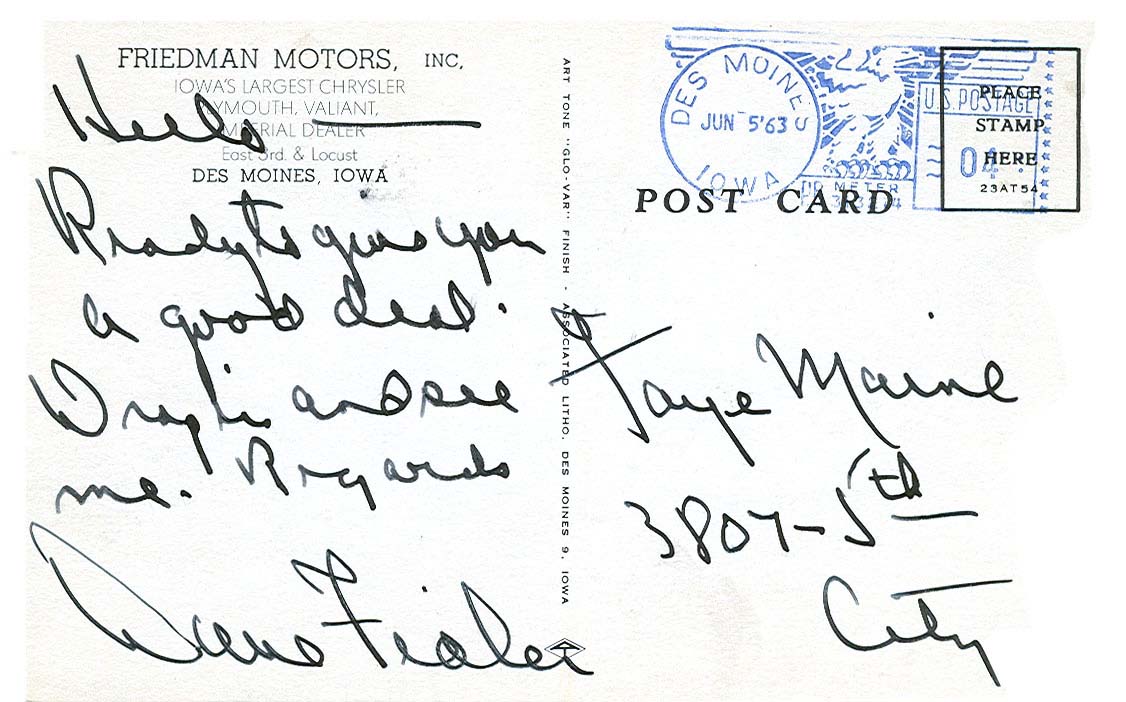 FRIEDMAN MOTORS, INC.
IOWA'S LARGEST CHRYSLER
PLYMOUTH, VALIANT,
IMPERIAL DEALER
East 3rd. & Locust
DES MOINES, IOWA
Hello —
Ready to give you
a good deal.
Drop in and see
me. Regards
Fidler
ART TONE "GLO-VAR" FINISH - ASSOCIATED LITHO. DES MOINES 9, IOWA
DES MOINES
JUN 5 '63
IOWA
U.S. POSTAGE
04
METER
PLACE
STAMP
HERE
23AT54
POST CARD
Faye Maine
3807-5th
City